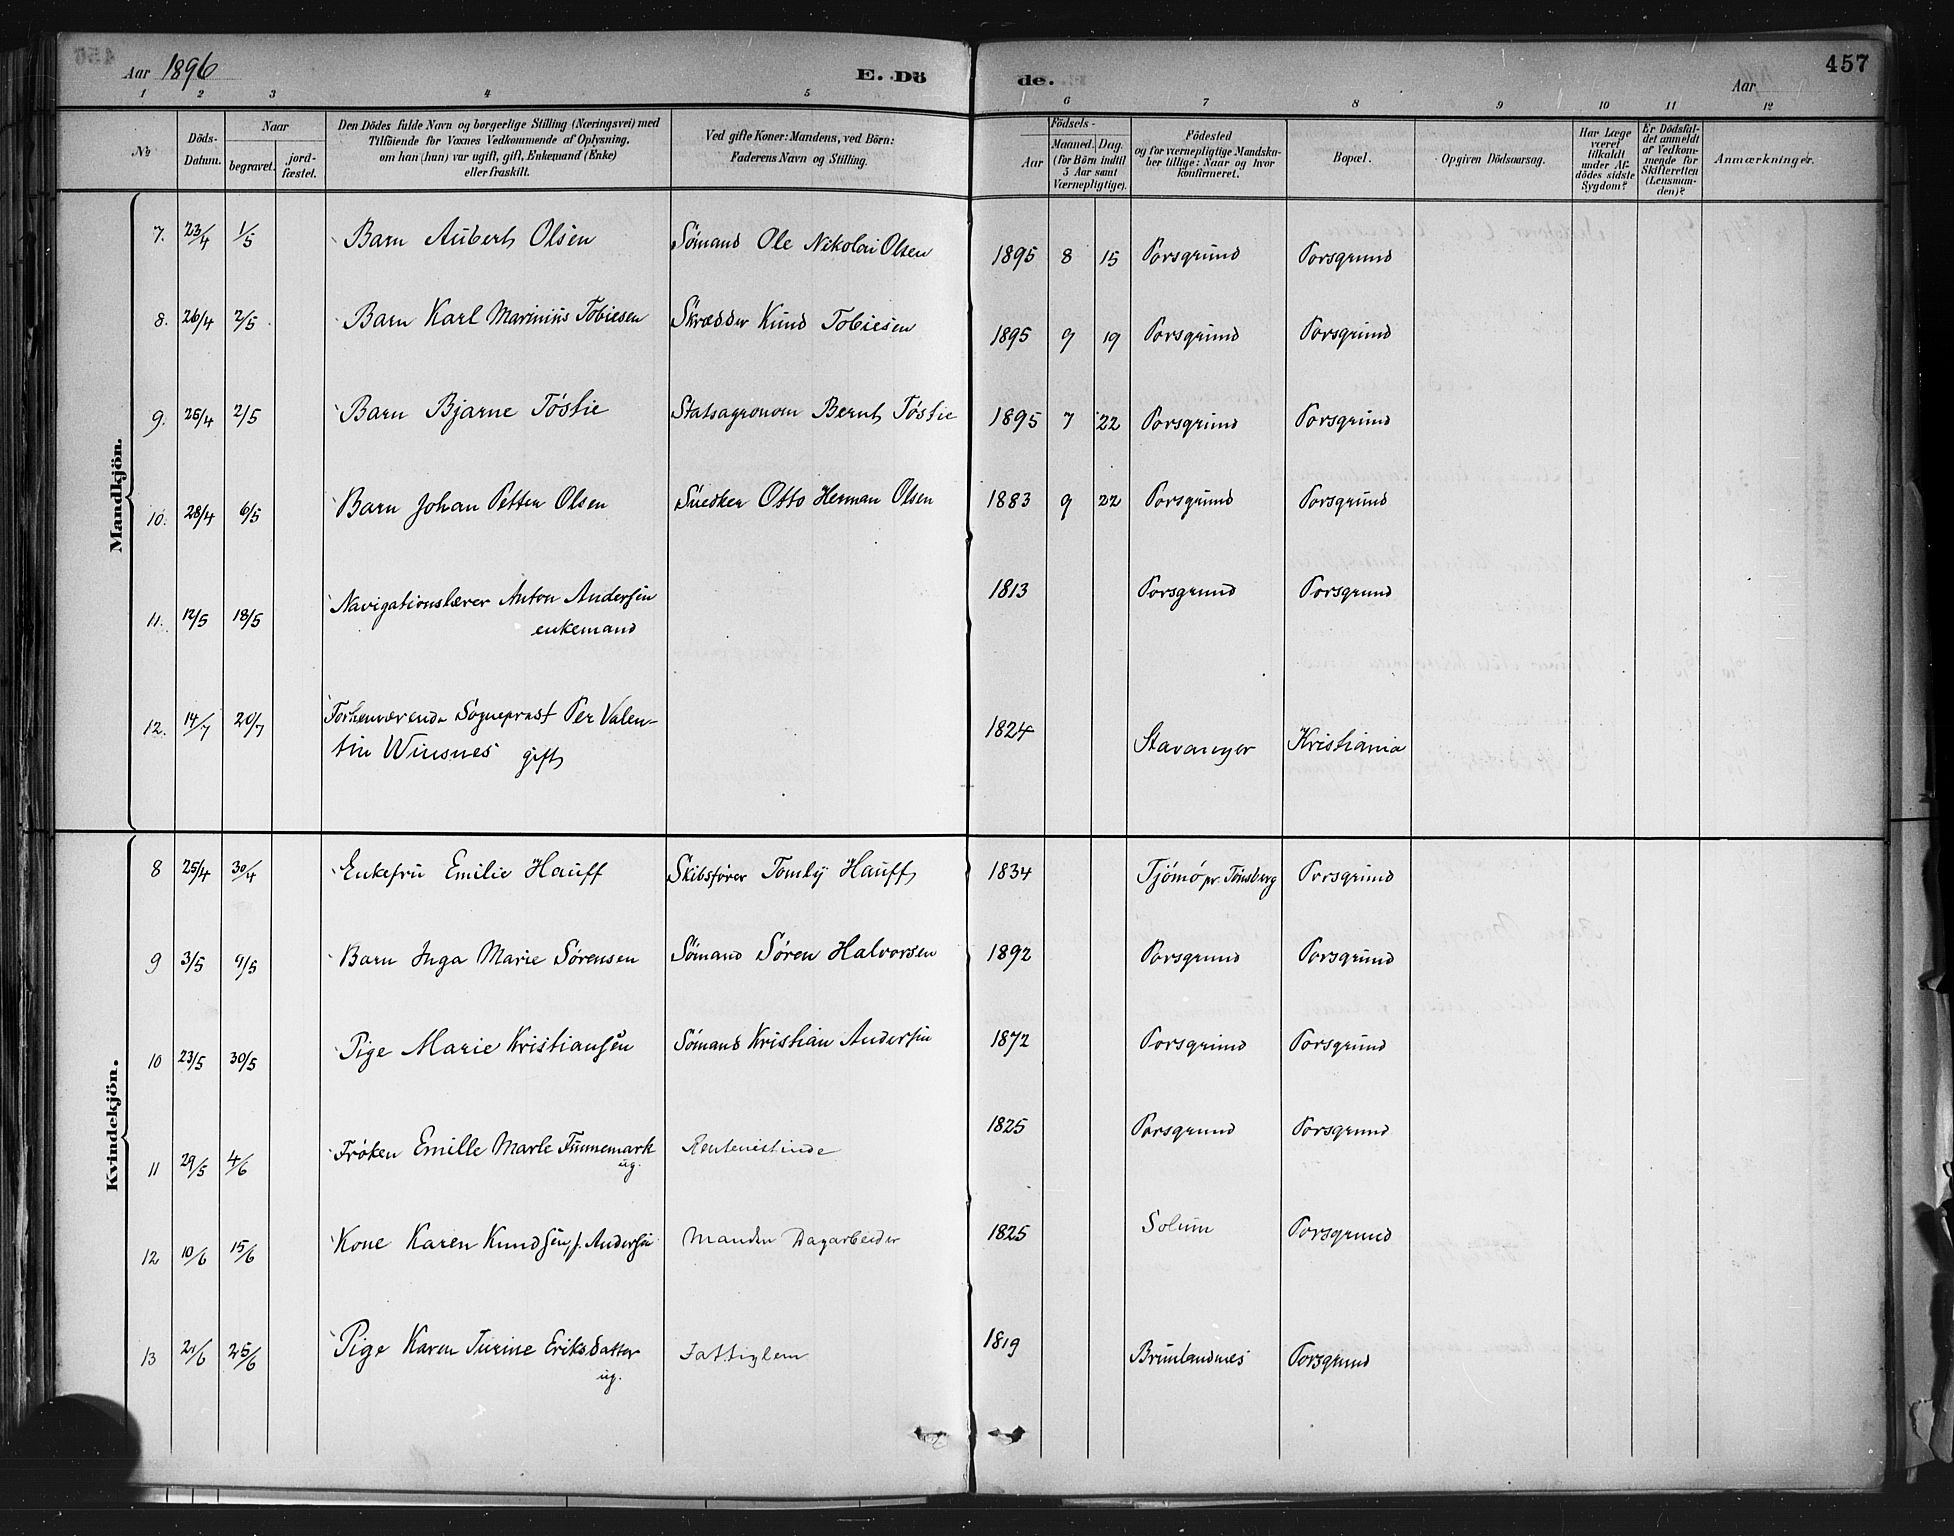 Aar 1896
E. Dö
de.
Aar
457
1 2 3 4 5 6 7 8 9 10 11 12
No
Döds-Datum.
Naar
begravet.
jord-fæstet.
Den Dödes fulde Navn og borgerlige Stilling (Næringsvei) med
Tilföiende for Voxnes Vedkommende af Oplysning,
om han (hun) var ugift, gift, Enkemand (Enke)
eller fraskilt.
Ved gifte Koner: Mandens, ved Börn:
Faderens Navn og Stilling.
Födsels-
Aar
Maaned. Dag.
(for Börn indtil
5 Aar samt
Værnepligtige).
Födested
og for værnepligtige Mandska-
ber tillige: Naar og hvor
konfirmeret.
Bopæl.
Opgiven Dödsaarsag.
Har Læge
været
tilkaldt
under Af-
dödes sidste
Sygdom?
Er Dödsfal-
det anmeldt
af Vedkom-
mende for
Skifteretten
(Lensman-
den)?
Anmærkninger.
Mandkjön.
7. 23/4 1/5 Barn Aubert Olsen Sømand Ole Nikolai Olsen 1895 8 15 Porsgrund Porsgrund
8. 26/4 2/5 Barn Karl Marinius Tobiesen Skrædder Knud Tobiesen 1895 9 19 Porsgrund Porsgrund
9. 25/4 2/5 Barn Bjarne Tóstie Statsagronom Bernt Tóstie 1895 7 22 Porsgrund Porsgrund
10. 28/4 6/5 Barn Johan Petter Olsen Snedker Otto Herman Olsen 1883 9 22 Porsgrund Porsgrund
11. 12/5 18/5 Navigationslærer Anton Andersen 1813 Porsgrund Porsgrund
enkemand
12. 14/7 20/7 Forhenværende Sogneprest Per Valen-
tin Winsnes gift 1824 Stavanger Kristiania
Kvindekjön.
8 25/4 30/4 Enkefru Emilie Hauff Skibsfører Tomly Hauff 1834 Tjömö pr. Tønsberg Porsgrund
9 3/5 9/5 Barn Inga Marie Sørensen Sømand Søren Halvorsen 1892 Porsgrund Porsgrund
10 23/5 30/5 Pige Marie Kristiansen Sømand Kristian Andersen 1872 Porsgrund Porsgrund
11 29/5 4/6 Frøken Emilie Marie Finnemark Rentenistinde 1825 Porsgrund Porsgrund
ug.
12 10/6 15/6 Kone Karen Knudsen, f. Andersen Manden Dagarbeider 1825 Solum Porsgrund
13 21/6 25/6 Pige Karen Turine Eriksdatter Fattiglem 1819 Brunlandnes Porsgrund
ug.